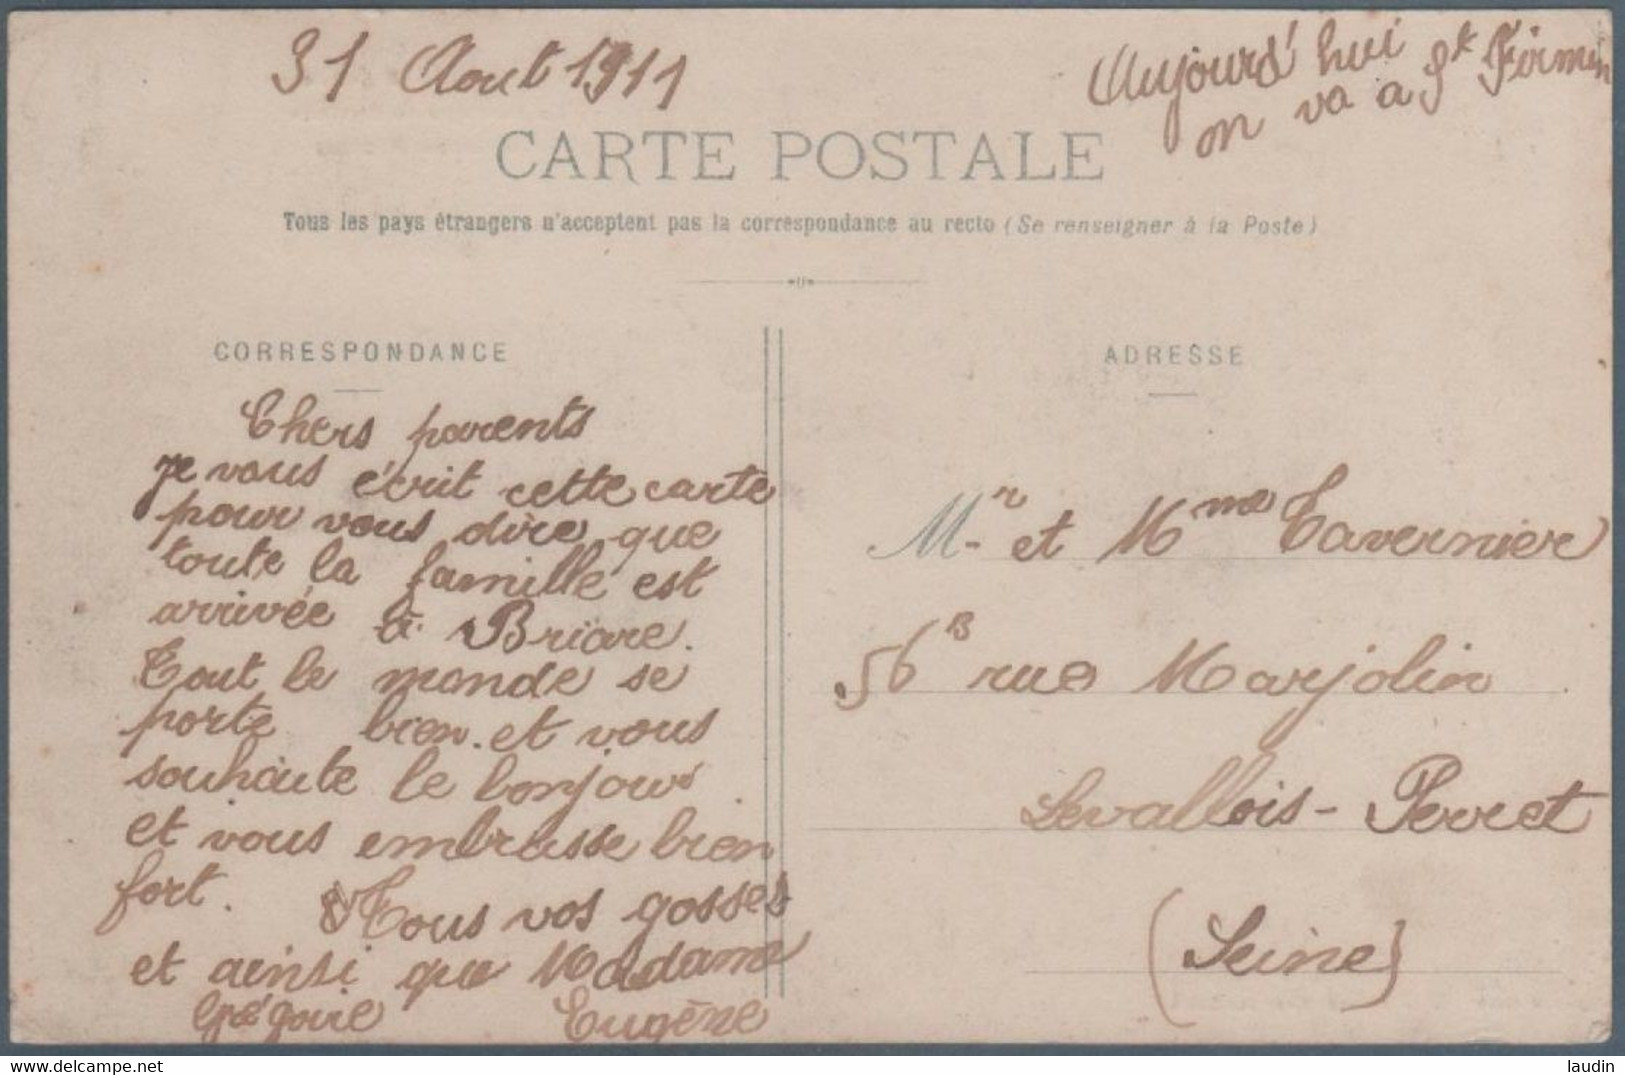 31 Aout 1911
Aujourd'hui
on va a St Firmin
CARTE POSTALE
Tous les pays étrangers n'acceptent pas la correspondance au recto (Se renseigner à la Poste)
CORRESPONDANCE
Chers parents
je vous écrit cette carte
pour vous dire que
toute la famille est
arrivée à Briare.
Tout le monde se
porte bien et vous
souhaite le bonjour
et vous embrasse bien
fort. Tous vos gosses
et ainsi que Madame
Grégoire Eugène
ADRESSE
Mr et Mme Tavernier
56 B rue Marjolin
Levallois-Perret
(Seine)
laudin